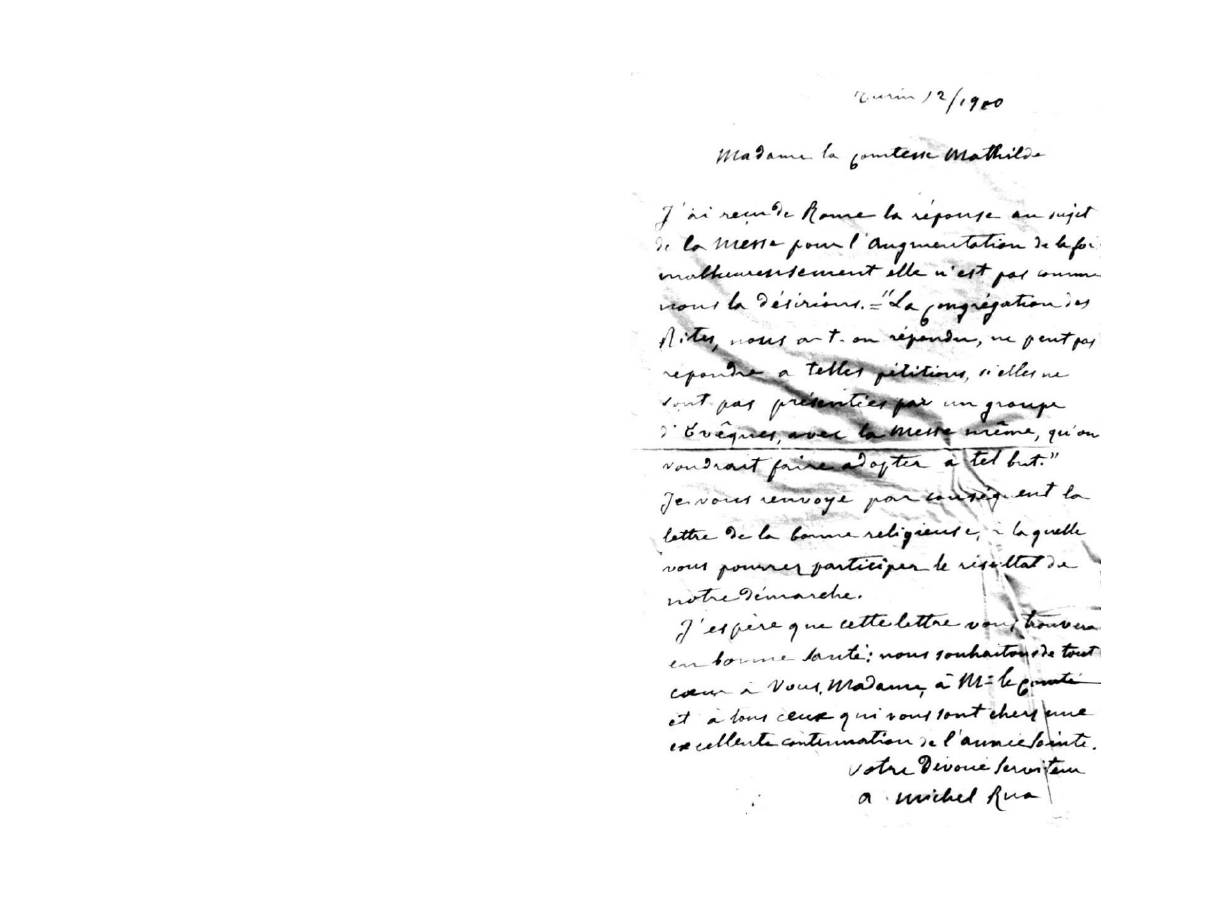 Turin 12/1900
Madame la Comtesse Mathilde
J'ai reçu de Rome la réponse au sujet
de la Messe pour l'augmentation de la foi
malheureusement elle n'est pas comme
nous la désirions. = "La Congrégation des
Rites, nous a-t-on répondu, ne peut pas
répondre a telles pétitions, si elles ne
sont pas présentées par un groupe
d'Evêques, avec la Messe même, qu'on
voudrait faire adopter à tel but."
Je vous renvoye par conséquent la
lettre de la bonne religieuse, à la quelle
vous pourrez participer le résultat de
notre démarche.
J'espère que cette lettre vous trouvera
en bonne santé: nous souhaitons de tout
cœur à Vous, Madame, à Mr le Comte
et à tous ceux qui vous sont chers une
excellente continuation de l'année sainte.
Votre Dévoué Serviteur
Michel Rua